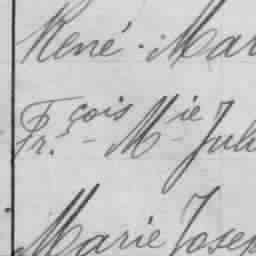 René - Mar
Fr.çois - Mie Juli
Marie Josep